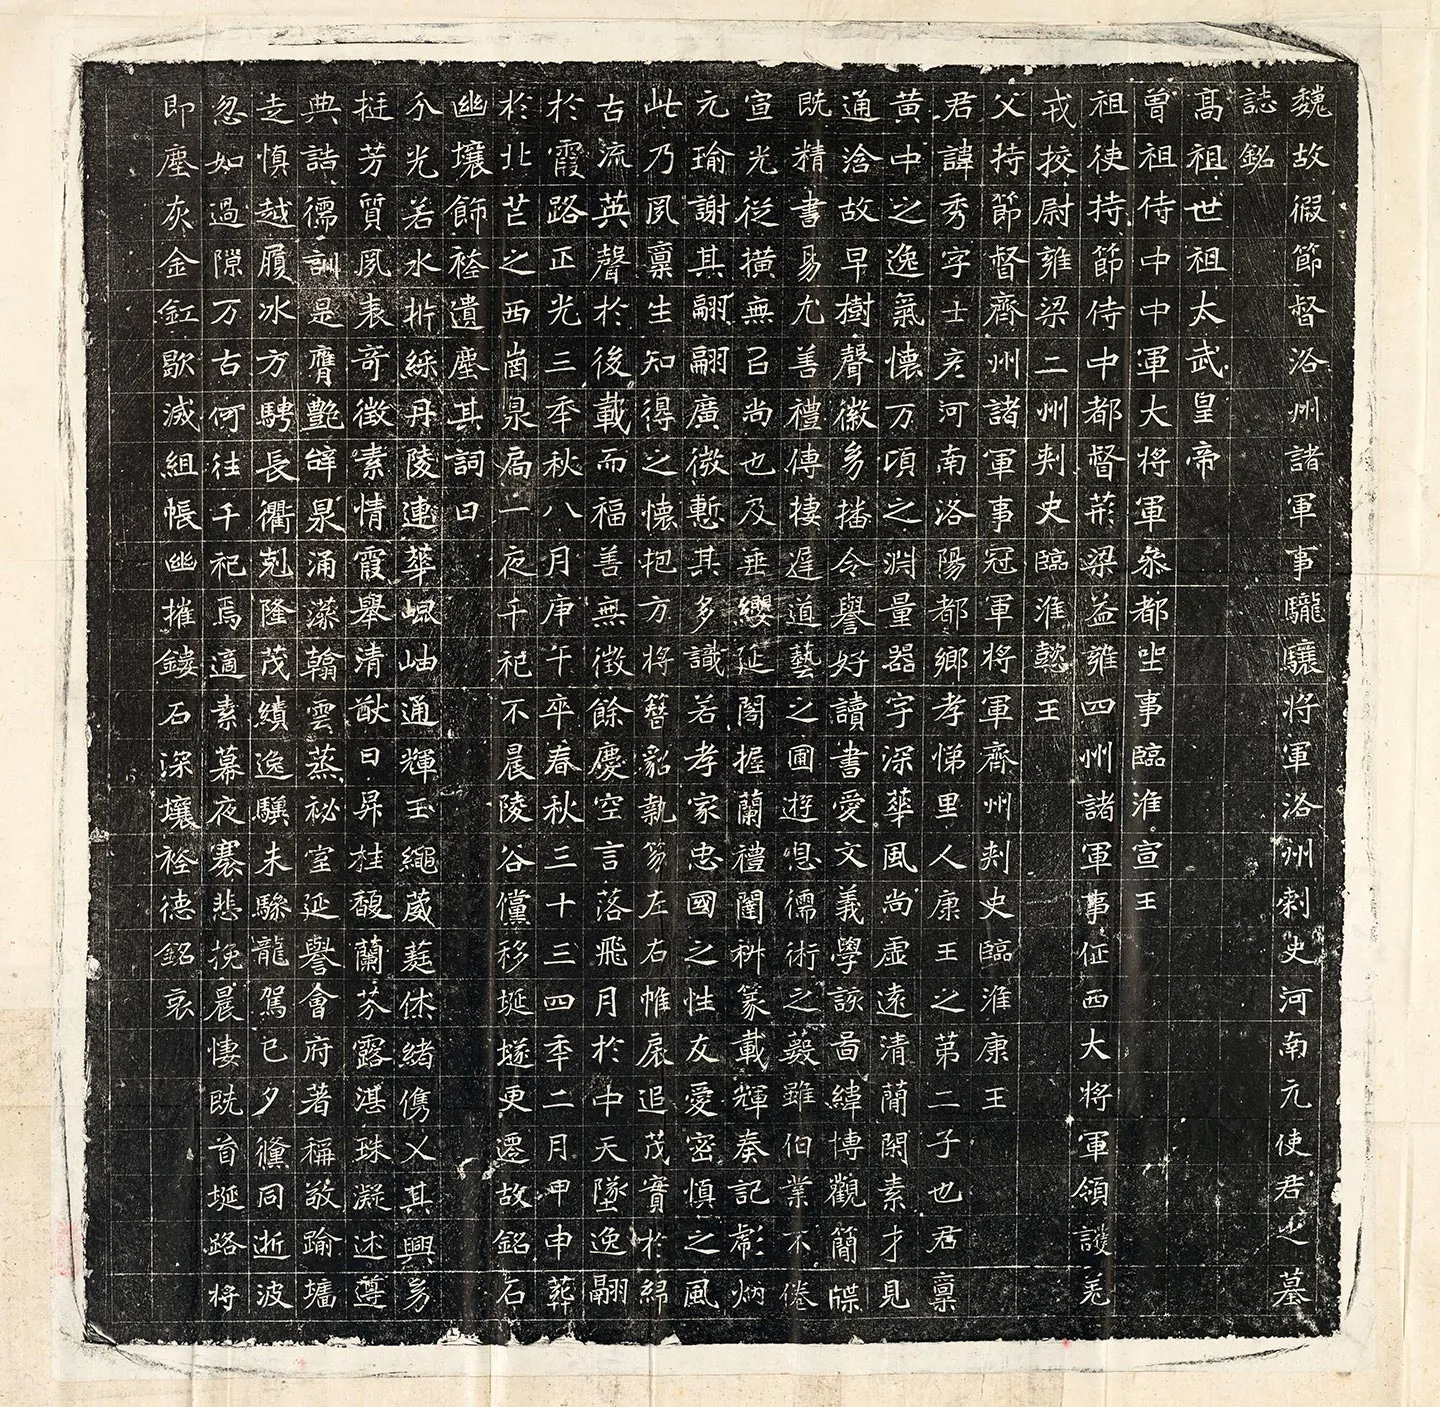 魏故假節督洛州諸軍事驪驤將軍洛州刺史河南元使君之墓
誌銘
高祖世祖太武皇帝
曾祖侍中中軍大將軍叅都坐事臨淮宣王
祖使持節侍中都督荊梁益雍四州諸軍事征西大將軍領護羌
戎挍尉雍梁二州刺史臨淮懿王
父持節督齊州諸軍事冠軍將軍齊州刺史臨淮康王
君諱秀字士彥河南洛陽都鄉孝悌里人康王之第二子也君稟
黃中之逸氣懷万頃之淵量器宇深華風尚虛遠清簡閑素才見
通洽故早樹聲徽多播令譽好讀書愛文義學該圖緯博觀簡牒
既精書易尤善禮傳棲遲道藝之圃遊息儒術之藪雖伯業不倦
宣光從橫無已尚也及垂纓延閣握蘭禮闈秘篆載輝奏記彪炳
元瑜謝其翩翩廣微慙其多識若孝家忠國之性友愛密慎之風
此乃夙稟生知得之懷抱方將簪貂執笏左右帷扆追茂實於綿
古流英聲於後載而福善無徵餘慶空言落飛月於中天墜逸翮
於霞路正光三年秋八月庚午卒春秋三十三四年二月甲申葬
於北芒之西崗泉扃一夜千祀不晨陵谷儻移埏燧更遷故銘石
幽壤飾旌遺塵其詞曰
分光若水析綵丹陵連華崐岫通輝玉繩葳蕤休緒儁乂其興豸
挺芳質夙表奇徵素情霞舉清猷日昇桂馥蘭芬露湛珠凝述遵
典誥儒訓是膺艷辭泉涌藻翰雲蒸祕室延譽會府著稱敬踰壚
走慎越履冰方騁長衢剋隆茂績逸驥未驂龍駕已夕儻同逝波
忽如過隙万古何往千祀焉適素幕夜褰悲挽晨悽既首埏路將
即塵灰金釭歇滅組帳幽摧鏤石深壤旌德銘哀